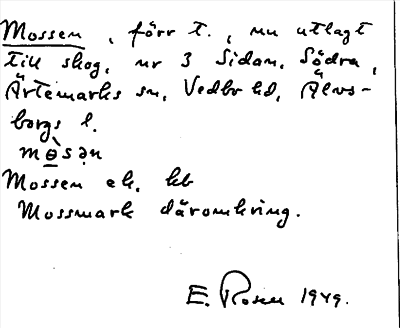 Mossen, förr t., nu utlagt
till skog, nr 3 Sidan, Södra,
Ärtemarks sn, Vedbo hd, Älvs-
borgs l.
mɵ̀sən
Mossen ek. kb
Mossmark däromkring.
E. Rosén 1949.